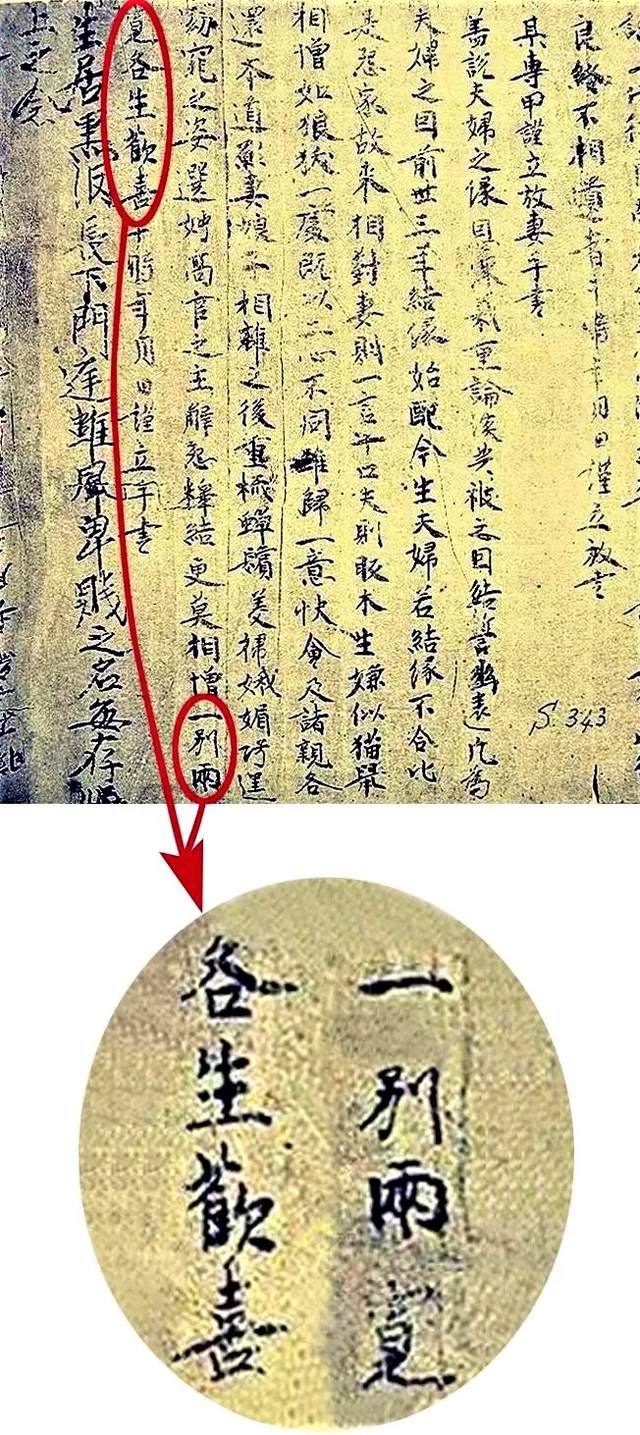 不相 者于時年月日謹立放書
某專甲謹立放妻手書
蓋說夫婦之緣恩深義重論談共被之因結誓幽遠凡為
夫婦之因前世三年結緣始配今生夫婦若結緣不合比
是怨家故來相對妻則一言十口夫則眅木生嫌似猫鼠
相憎如狼㹳一處既以二心不同難歸一意快會及諸親各
還本道願妻娘子相離之後重梳蟬鬢美掃娥媚巧逞
窈窕之姿選娉高官之主解怨釋結更莫相憎一別兩
寬各生歡喜于時年月日謹立手書
生居 長下門庭雖屏卑賤之名每存
上之念
S.343
一別兩寬
各生歡喜